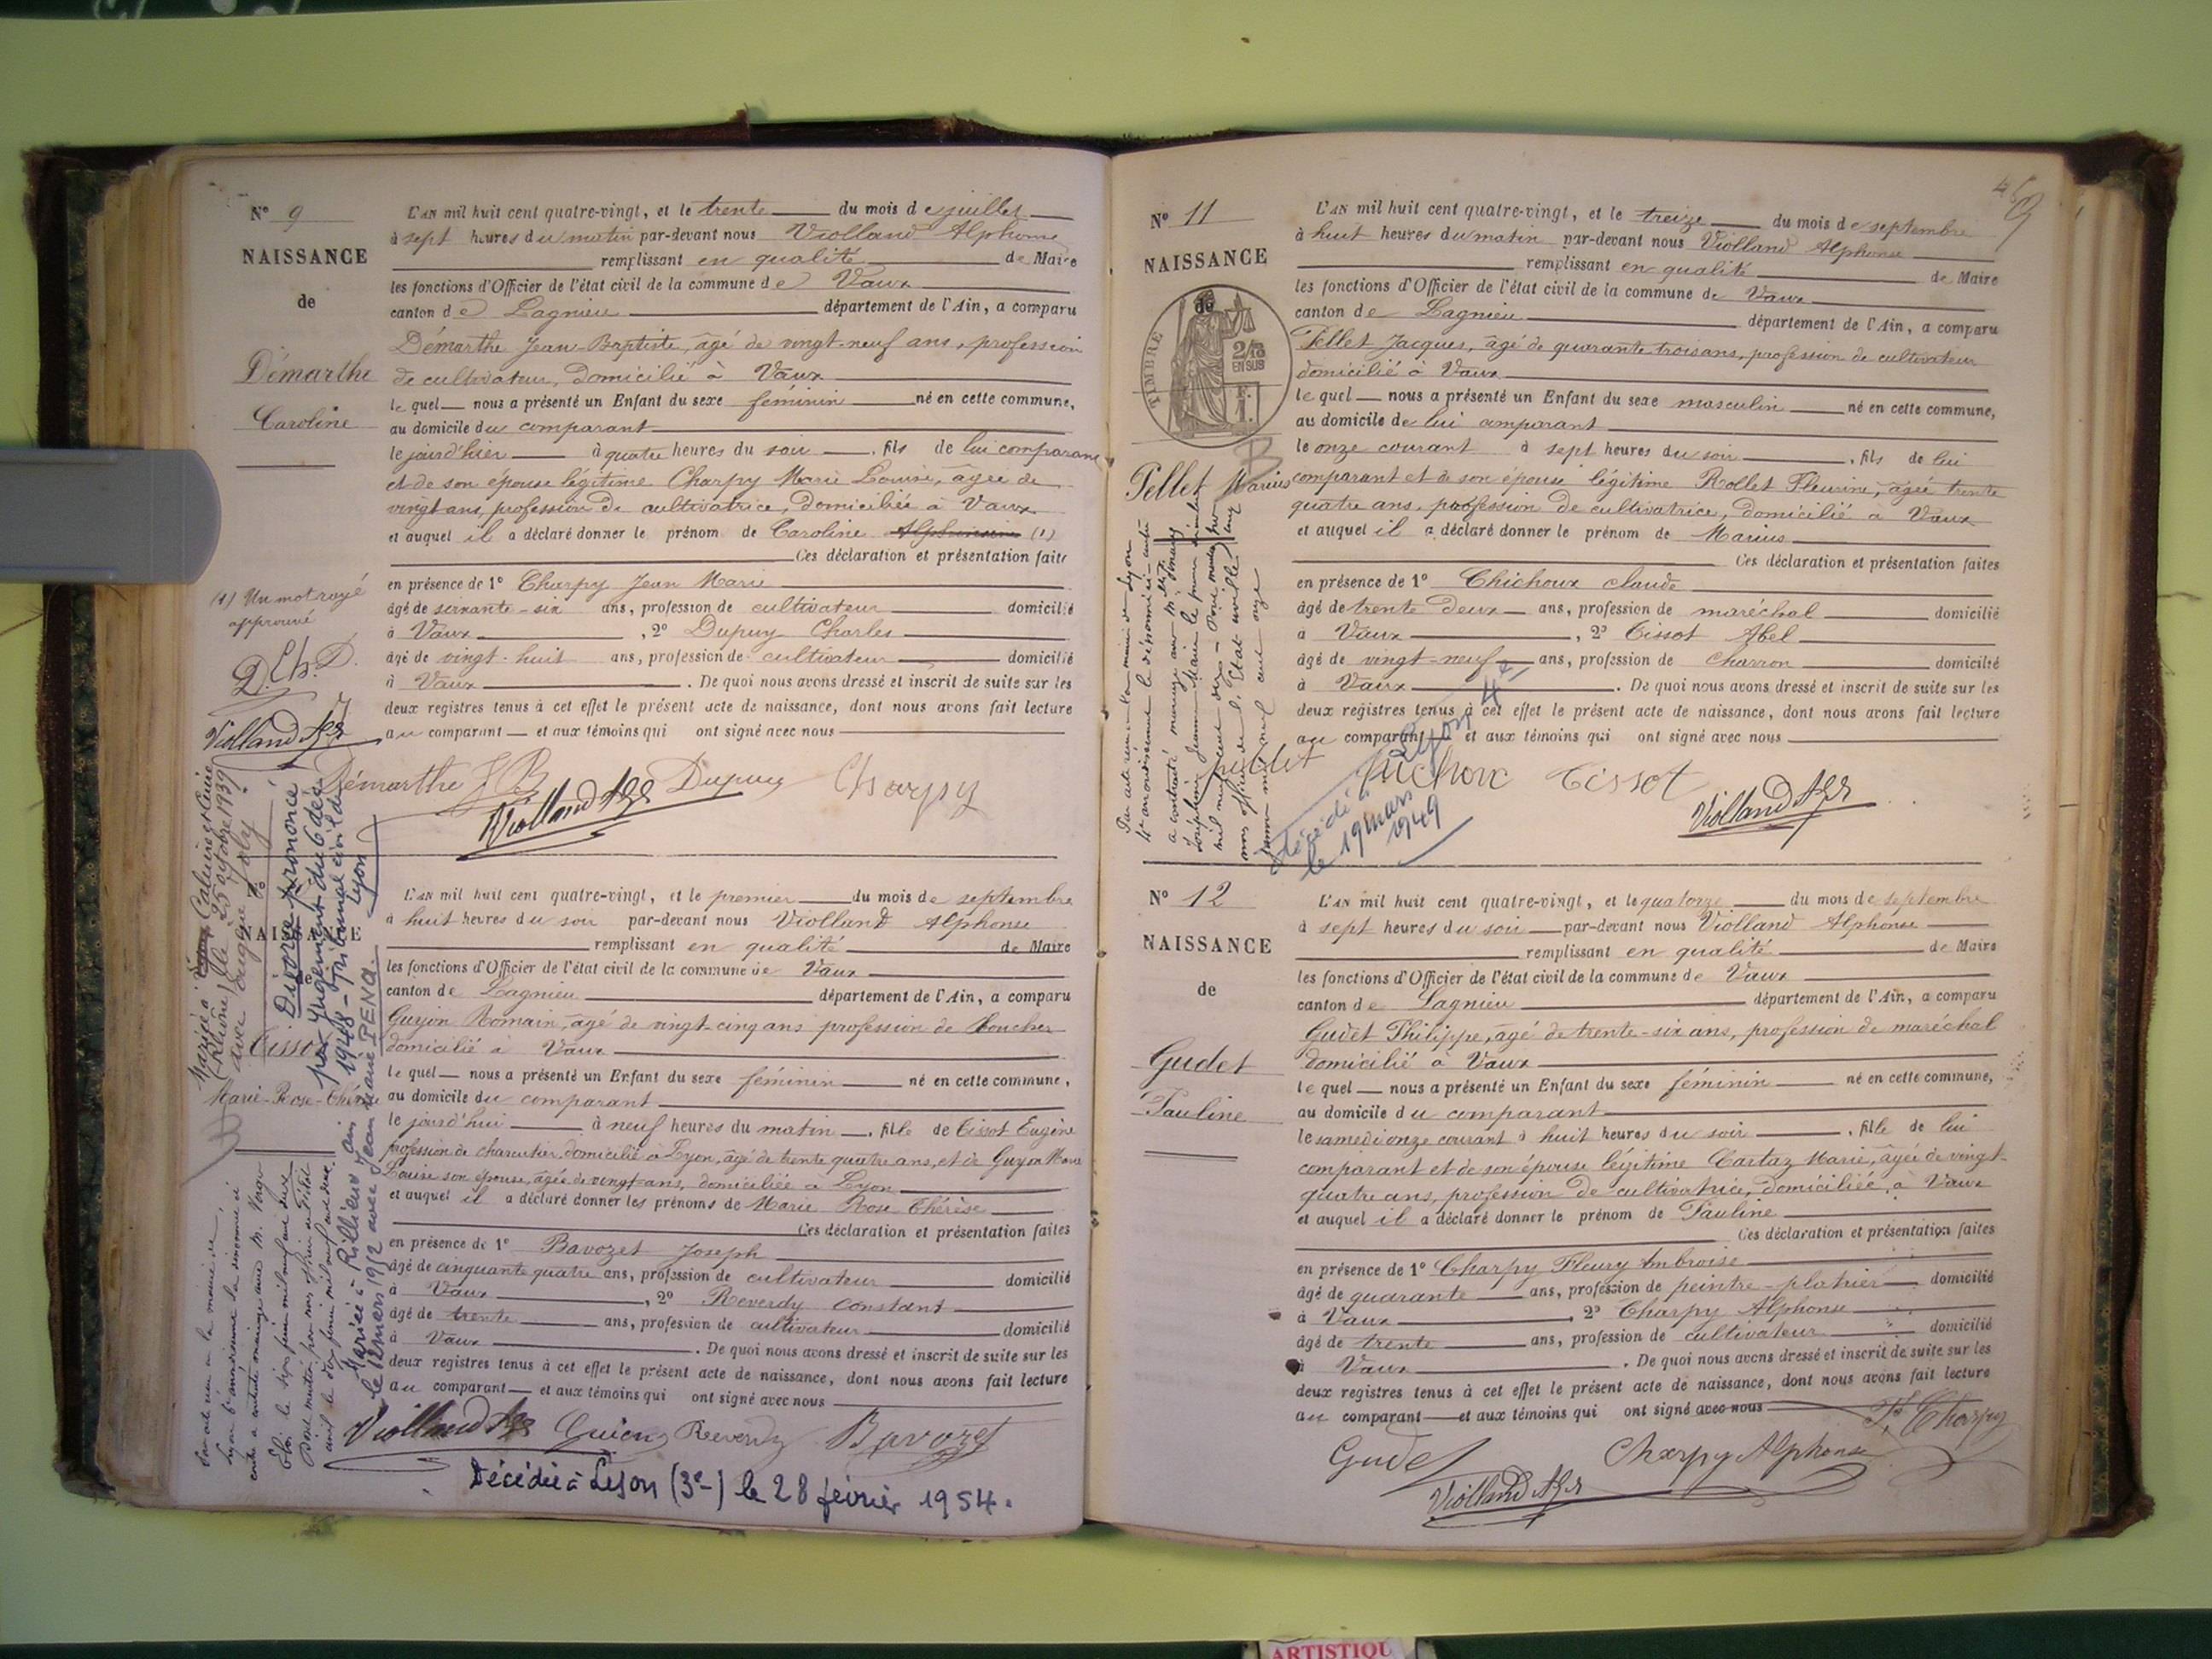 N° 9
NAISSANCE
de
Démarthe
Caroline
(1) Un mot rayé
approuvé
D. Ch. D.
Violland
L'AN mil huit cent quatre-vingt, et le trente du mois de juillet
à sept heures du matin par-devant nous Violland Alphonse
remplissant en qualité de Maire
les fonctions d'Officier de l'état civil de la commune de Vaux
canton de Lagnieu département de l'Ain, a comparu
Démarthe Jean-Baptiste, âgé de vingt-neuf ans, profession
de cultivateur, domicilié à Vaux
lequel nous a présenté un Enfant du sexe féminin né en cette commune,
au domicile du comparant
le jourd'hier à quatre heures du soir, fils de lui comparant
et de son épouse légitime Charpy Marie Louise, âgée de
vingt ans, profession de cultivatrice, domiciliée à Vaux
et auquel il a déclaré donner le prénom de Caroline (1)
Ces déclaration et présentation faites
en présence de 1° Charpy Jean Marie
âgé de soixante-six ans, profession de cultivateur domicilié
à Vaux, 2° Dupuy Charles
âgé de vingt-huit ans, profession de cultivateur domicilié
à Vaux. De quoi nous avons dressé et inscrit de suite sur les
deux registres tenus à cet effet le présent acte de naissance, dont nous avons fait lecture
au comparant et aux témoins qui ont signé avec nous
Démarthe J B Violland Dupuy Charpy
Mariée à Caluire et Cuire
(Rhône) le 25 octobre 1939
avec
Divorce prononcé
par jugement du 6 déc
1948 - Tribunal civil de
Lyon
NAISSANCE
Tissot
Marie-Rose-Thérèse
L'AN mil huit cent quatre-vingt, et le premier du mois de septembre
à huit heures du soir par-devant nous Violland Alphonse
remplissant en qualité de Maire
les fonctions d'Officier de l'état civil de la commune de Vaux
canton de Lagnieu département de l'Ain, a comparu
Guyon Romain, âgé de vingt-cinq ans profession de Boucher
domicilié à Vaux
lequel nous a présenté un Enfant du sexe féminin né en cette commune,
au domicile du comparant
le jourd'hui à neuf heures du matin, fille de Tissot Eugène
profession de charcutier, domicilié à Lyon, âgé de trente quatre ans, et de Guyon Marie
Louise son épouse, âgée de vingt ans, domiciliée à Lyon
et auquel il a déclaré donner les prénoms de Marie Rose Thérèse
Ces déclaration et présentation faites
en présence de 1° Bavozet Joseph
âgé de cinquante quatre ans, profession de cultivateur domicilié
à Vaux, 2° Reverdy Constant
âgé de trente ans, profession de cultivateur domicilié
à Vaux. De quoi nous avons dressé et inscrit de suite sur les
deux registres tenus à cet effet le présent acte de naissance, dont nous avons fait lecture
au comparant et aux témoins qui ont signé avec nous
Violland Reverdy Bavozet
Mariée à Rillieux Ain
le 12 mars 1912 avec Jean Marie PENA.
Décédée à Lyon (3e) le 28 février 1954.
469
N° 11
NAISSANCE
de
TIMBRE
2/10
EN SUS
Pellet Marius
L'AN mil huit cent quatre-vingt, et le treize du mois de septembre
à huit heures du matin par-devant nous Violland Alphonse
remplissant en qualité de Maire
les fonctions d'Officier de l'état civil de la commune de Vaux
canton de Lagnieu département de l'Ain, a comparu
Pellet Jacques, âgé de quarante trois ans, profession de cultivateur
domicilié à Vaux
lequel nous a présenté un Enfant du sexe masculin né en cette commune,
au domicile de lui comparant
le onze courant à sept heures du soir, fils de lui
comparant et de son épouse légitime Rollet Fleurine, âgée trente
quatre ans, profession de cultivatrice, domicilié à Vaux
et auquel il a déclaré donner le prénom de Marius
Ces déclaration et présentation faites
en présence de 1° Chichoux claude
âgé de trente deux ans, profession de maréchal domicilié
à Vaux, 2° Tissot Abel
âgé de vingt-neuf ans, profession de charron domicilié
à Vaux. De quoi nous avons dressé et inscrit de suite sur les
deux registres tenus à cet effet le présent acte de naissance, dont nous avons fait lecture
au comparant et aux témoins qui ont signé avec nous
pellet Chichoux Tissot Violland
Décédé à Lyon 4e
le 19 mars
1949
N° 12
NAISSANCE
de
Gudet
Pauline
L'AN mil huit cent quatre-vingt, et le quatorze du mois de septembre
à sept heures du soir par-devant nous Violland Alphonse
remplissant en qualité de Maire
les fonctions d'Officier de l'état civil de la commune de Vaux
canton de Lagnieu département de l'Ain, a comparu
Gudet Philippe, âgé de trente-six ans, profession de maréchal
domicilié à Vaux
lequel nous a présenté un Enfant du sexe féminin né en cette commune,
au domicile du comparant
le samedi onze courant à huit heures du soir, fille de lui
comparant et de son épouse légitime Cartaz Marie, âgée de vingt-
quatre ans, profession de cultivatrice, domiciliée à Vaux
et auquel il a déclaré donner le prénom de Pauline
Ces déclaration et présentation faites
en présence de 1° Charpy Fleury Ambroise
âgé de quarante ans, profession de peintre-plâtrier domicilié
à Vaux, 2° Charpy Alphonse
âgé de trente ans, profession de cultivateur domicilié
à Vaux. De quoi nous avons dressé et inscrit de suite sur les
deux registres tenus à cet effet le présent acte de naissance, dont nous avons fait lecture
au comparant et aux témoins qui ont signé avec nous
Gudet Charpy Alphonse Charpy
Violland
ARTISTIQU